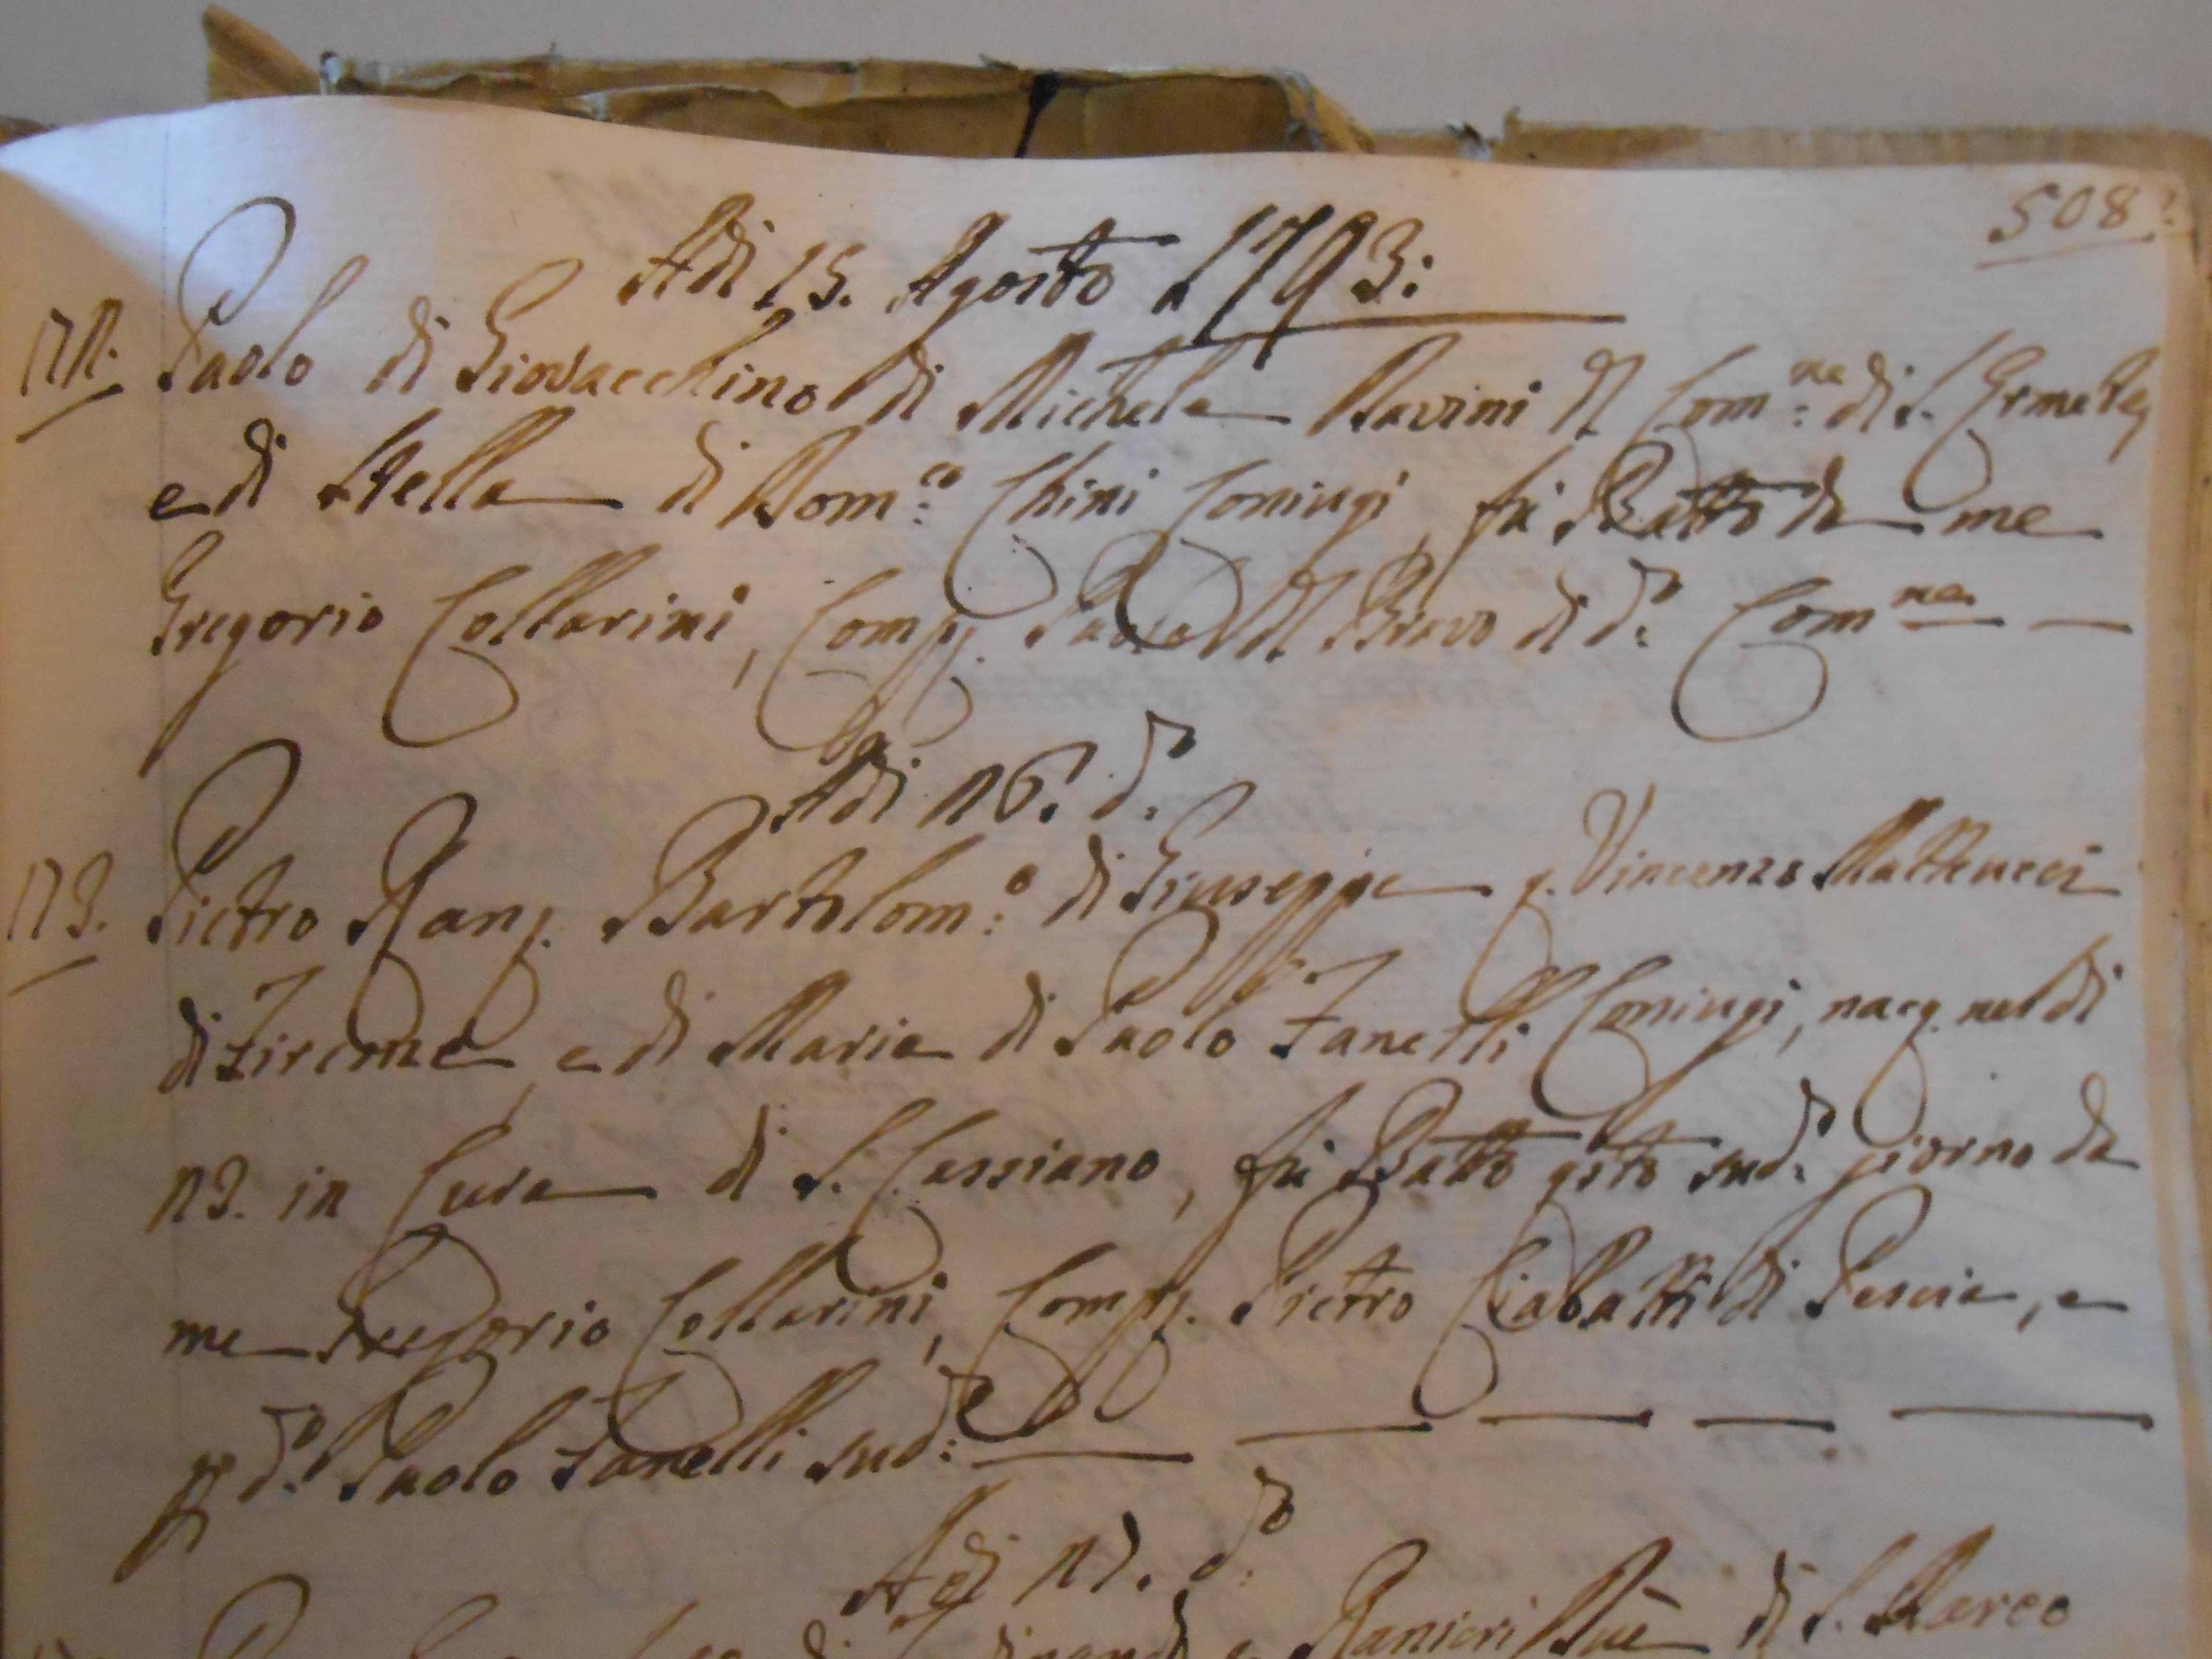 508
Adi 15. Agosto 1793:
Paolo di Giovacchino di Michele Navini di Com.ne di S. Ermete,
e di Stella di Dom.co Chini Coniugi, fu Batto da me
Gregorio Collarini, Comp. Paolo del Bravo di d.o Com.ne
Adi 16. d.o
Pietro Ran. Bartolom.o di Giuseppe q. Vincenzo Matteucci
di Firenze, e di Maria di Paolo Zanelli Coniugi, nacq. nel dì
13. in Cura di S. Cassiano, fu Batto qsto sud.o giorno da
me Gregorio Collarini, Comp. Pietro Ciabatti di Pescia, e
p d.o Paolo Zanelli sud.e
Adi 17. d.o
Ranieri di S. Marco